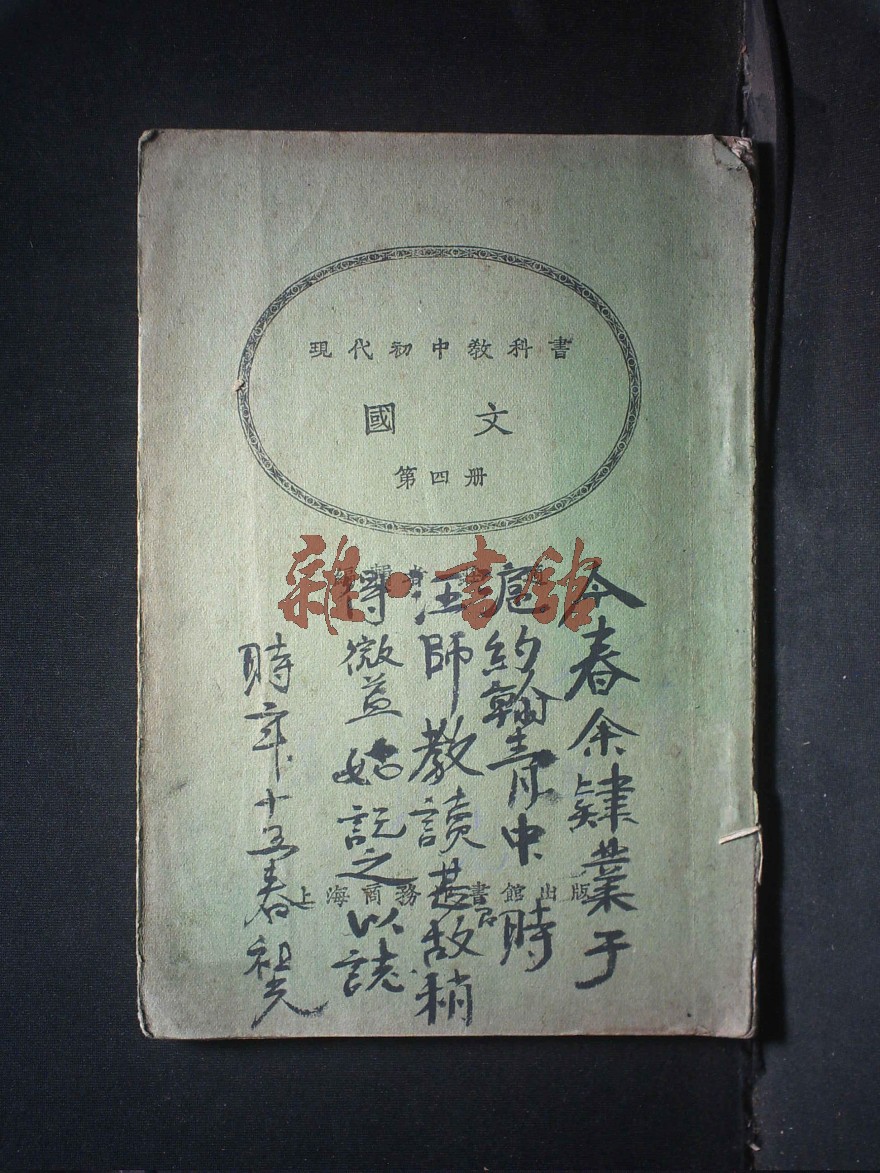 現代初中教科書
國文
第四册
雜·書館
今春余肄業于
約翰青年中時
汪師教讀甚故稍
得微益 姑記之以誌
時年十五春祖光
上海商務 書館出版